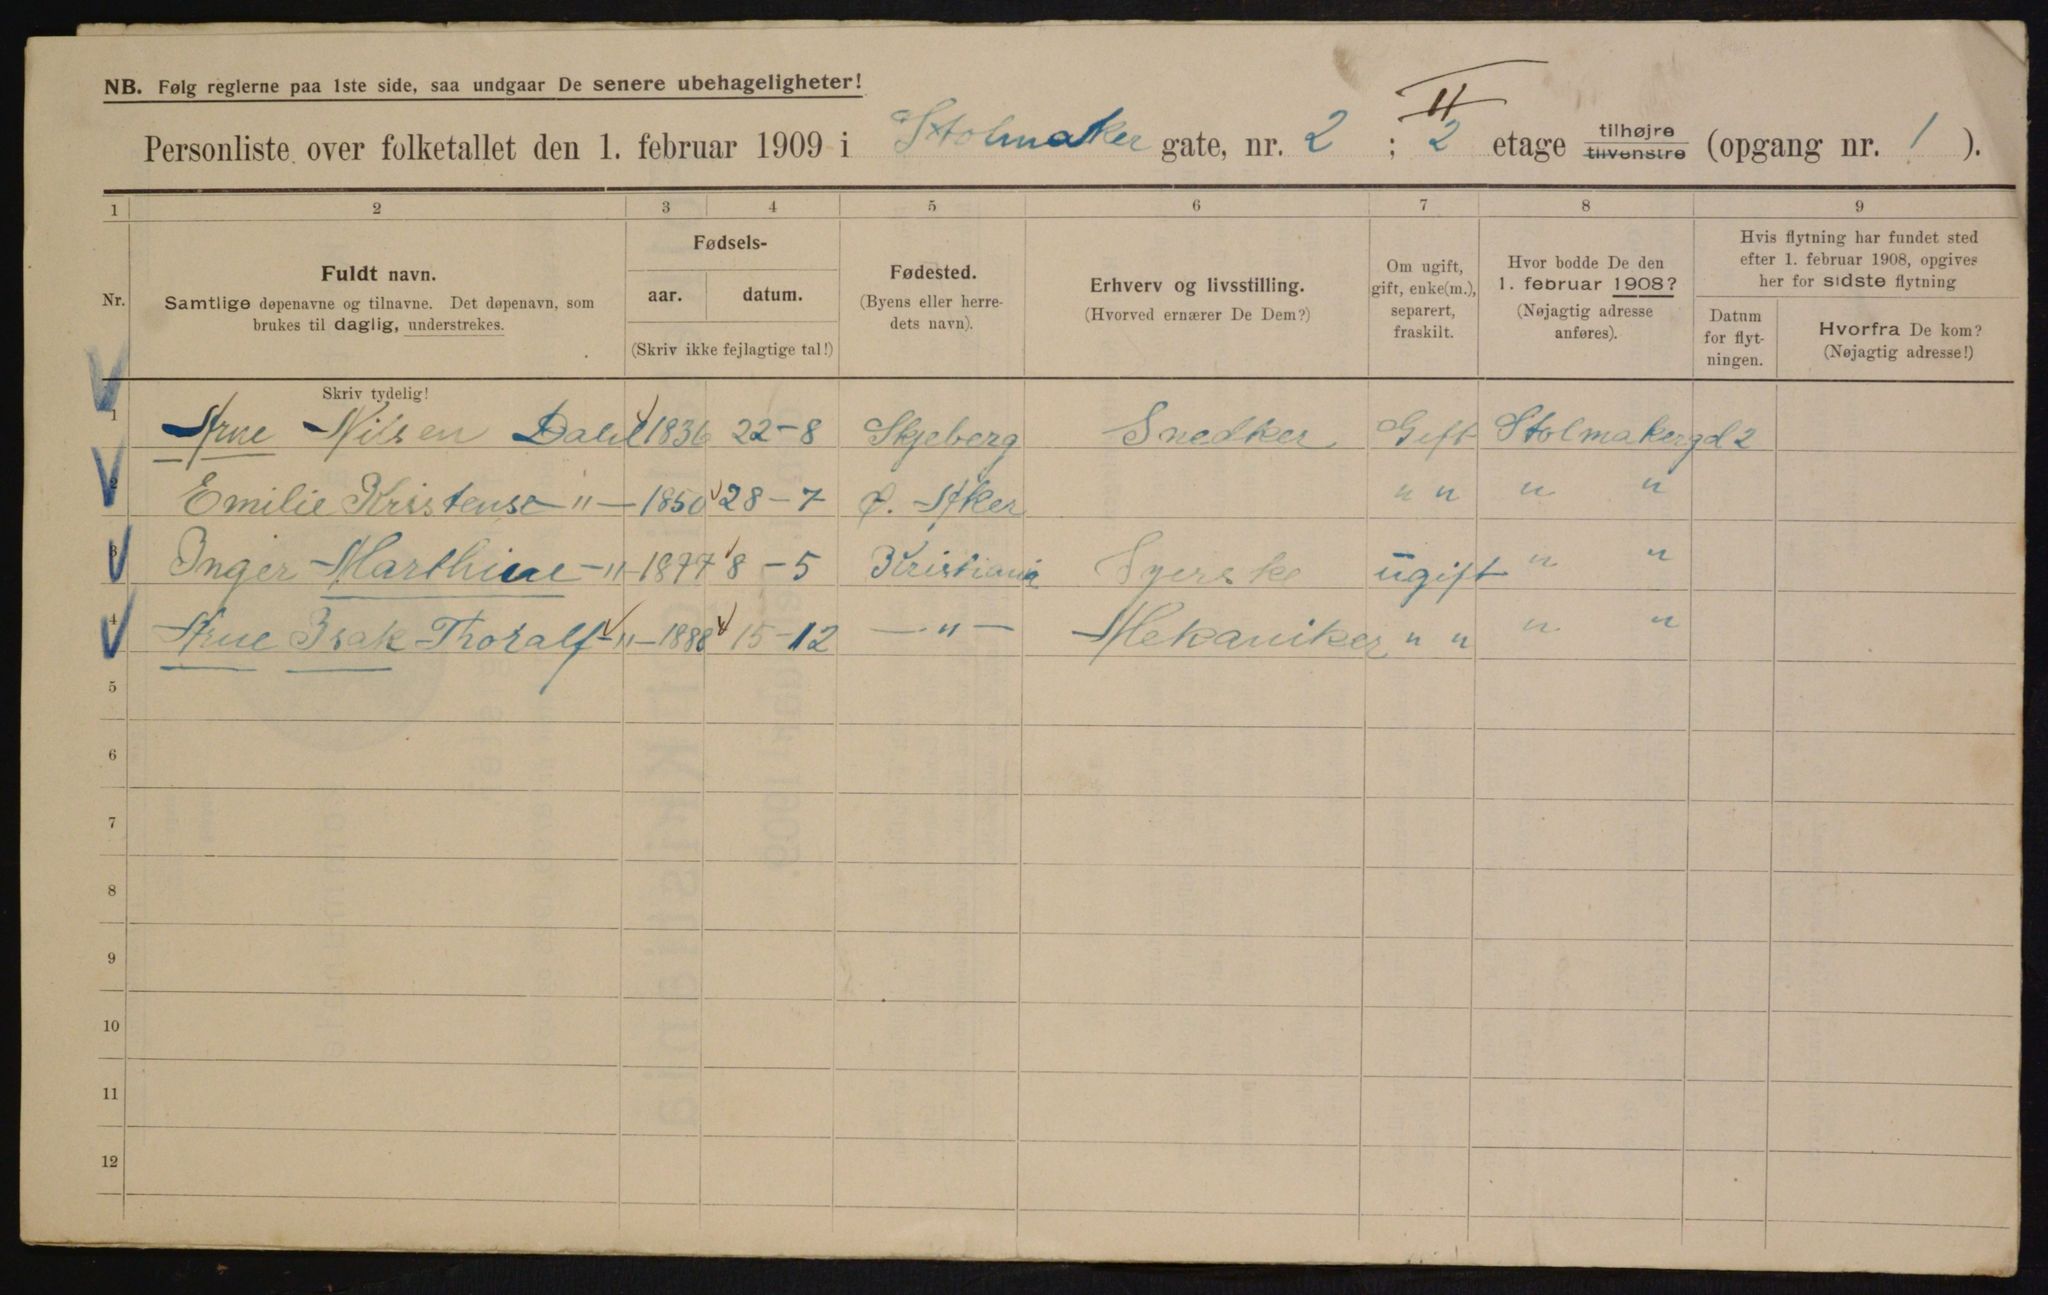 NB. Følg reglerne paa 1ste side, saa undgaar De senere ubehageligheter!
II
Personliste over folketallet den 1. februar 1909 i Stolmaker gate, nr. 2 ; 2 etage tilhøjre tilvenstre (opgang nr. 1 ).
1 2 3 4 5 6 7 8 9
Nr.
Fuldt navn.
Samtlige døpenavne og tilnavne. Det døpenavn, som
brukes til daglig, understrekes.
Fødsels-
aar. datum.
(Skriv ikke fejlagtige tal!)
Fødested.
(Byens eller herre-
dets navn).
Erhverv og livsstilling.
(Hvorved ernærer De Dem?)
Om ugift,
gift, enke(m.),
separert,
fraskilt.
Hvor bodde De den
1. februar 1908?
(Nøjagtig adresse
anføres).
Hvis flytning har fundet sted
efter 1. februar 1908, opgives
her for sidste flytning
Datum
for flyt-
ningen.
Hvorfra De kom?
(Nøjagtig adresse!)
Skriv tydelig!
1 Arne Nilsen Dahl 1836 22-8 Skjeberg Snedker Gift Stolmakergd 2
2 Emilie Kristense -"- 1850 28-7 Ø. Aker " " " "
3 Inger Marthine -"- 1877 8-5 Kristiania Syerske ugift " "
4 Arne Isak Thoralf -"- 1888 15-12 -"- Mekaniker " " " "
5
6
7
8
9
10
11
12